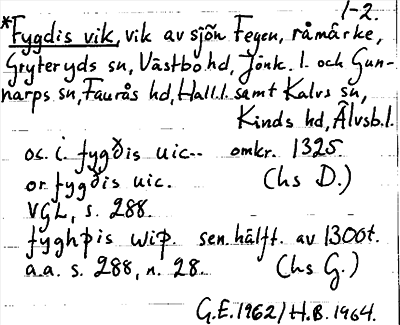 1-2.
*Fygdis vik, vik av sjön Fegen, råmärke,
Gryteryds sn, Västbo hd, Jönk. l. och Gun-
narps sn, Faurås hd, Hall.l. samt Kalvs sn,
Kinds hd, Älvsb.l.
oc. i. fygðis uic-- omkr. 1325.
or fygðis uic. (hs D.)
VGL, s. 288.
fyghþis wiþ. sen. hälft. av 1300t.
a.a. s. 288, n. 28. (hs G.)
G.E. 1962/H.B. 1964.